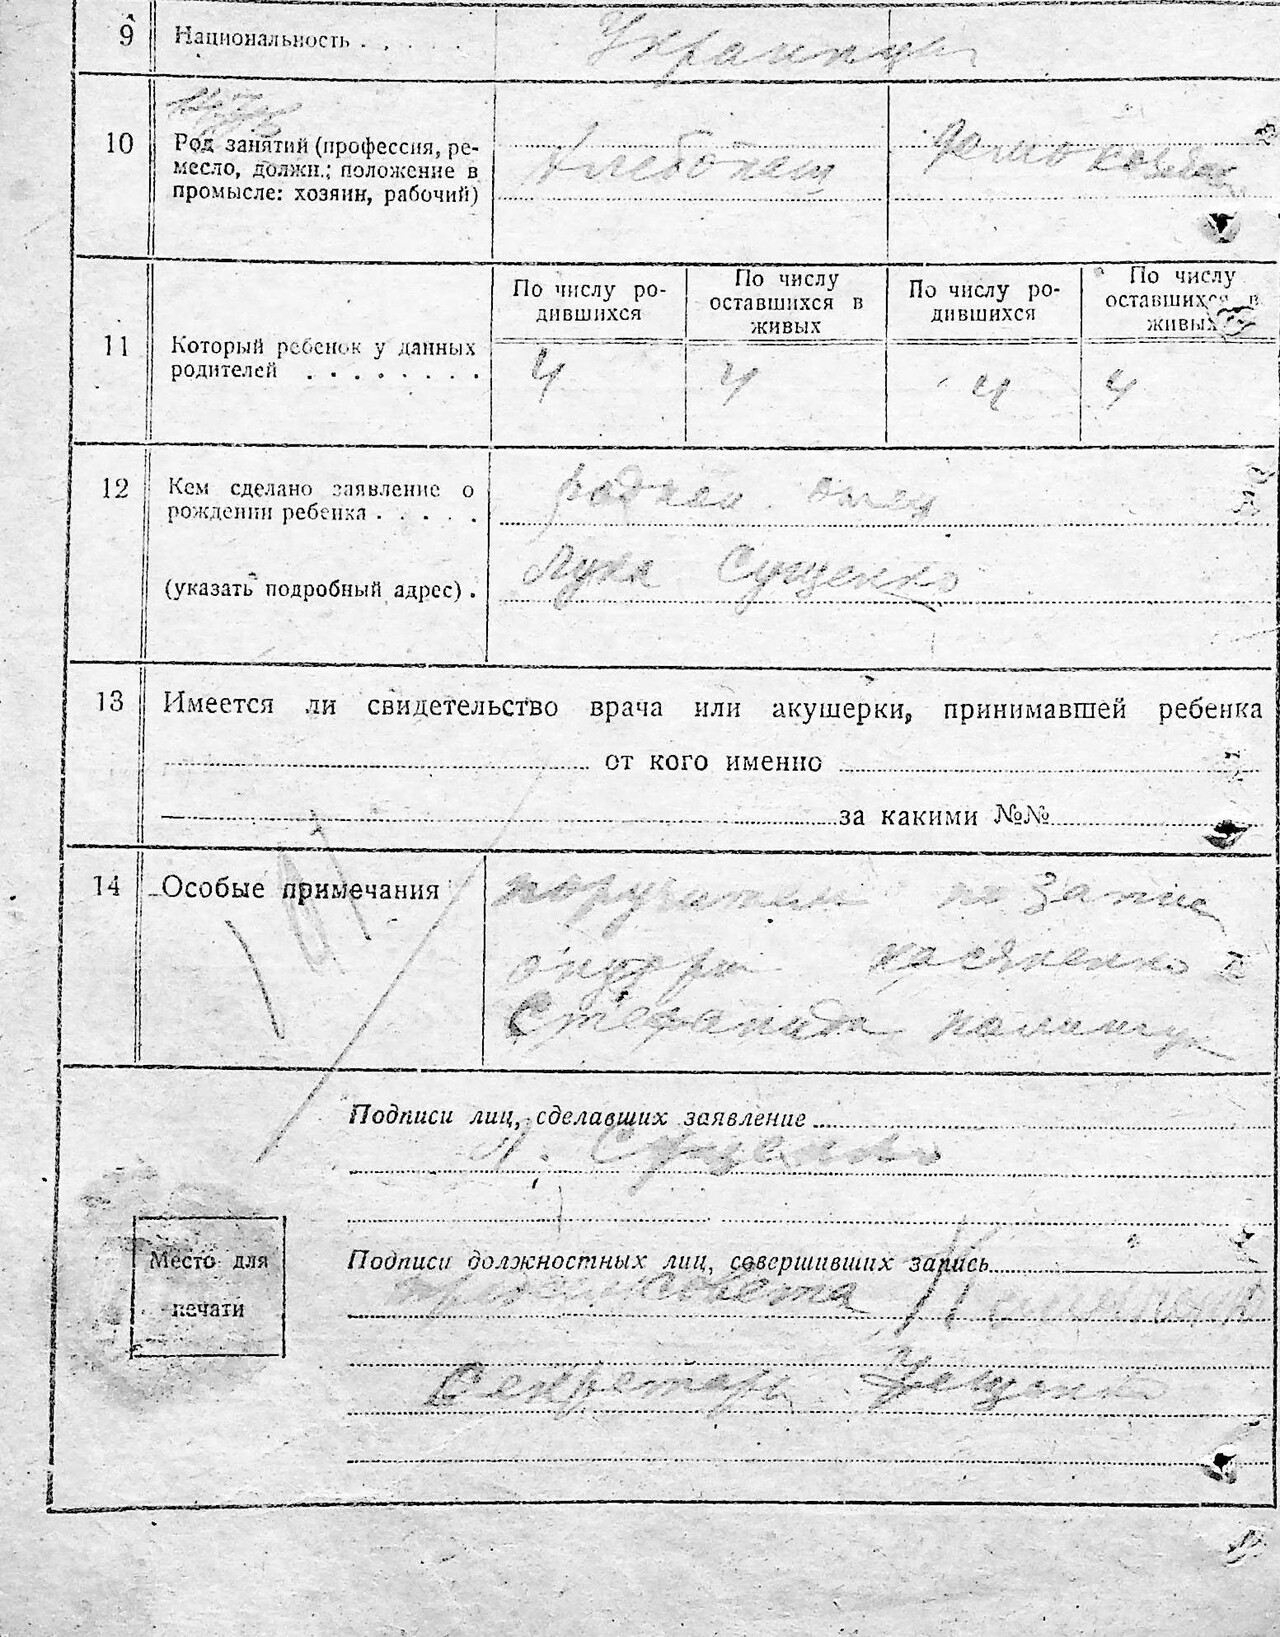 9 Национальность . . . . . Украинцы
10 Род занятий (профессия, ре-
месло, должн.; положение в
промысле: хозяин, рабочий)
Хлебопаш
11 Который ребенок у данных
родителей . . . . . . . .
По числу ро-
дившихся
По числу
оставшихся в
живых
По числу ро-
дившихся
По числу
оставшихся в
живых
4 4 4 4
12 Кем сделано заявление о
рождении ребенка . . . . .
(указать подробный адрес) .
родной отец
Лука Сущенко
13 Имеется ли свидетельство врача или акушерки, принимавшей ребенка
от кого именно
за какими №№
14 Особые примечания
Стефанида
Подписи лиц, сделавших заявление
Л. Сущенко
Подписи должностных лиц, совершивших запись
Секретарь
Место для
печати